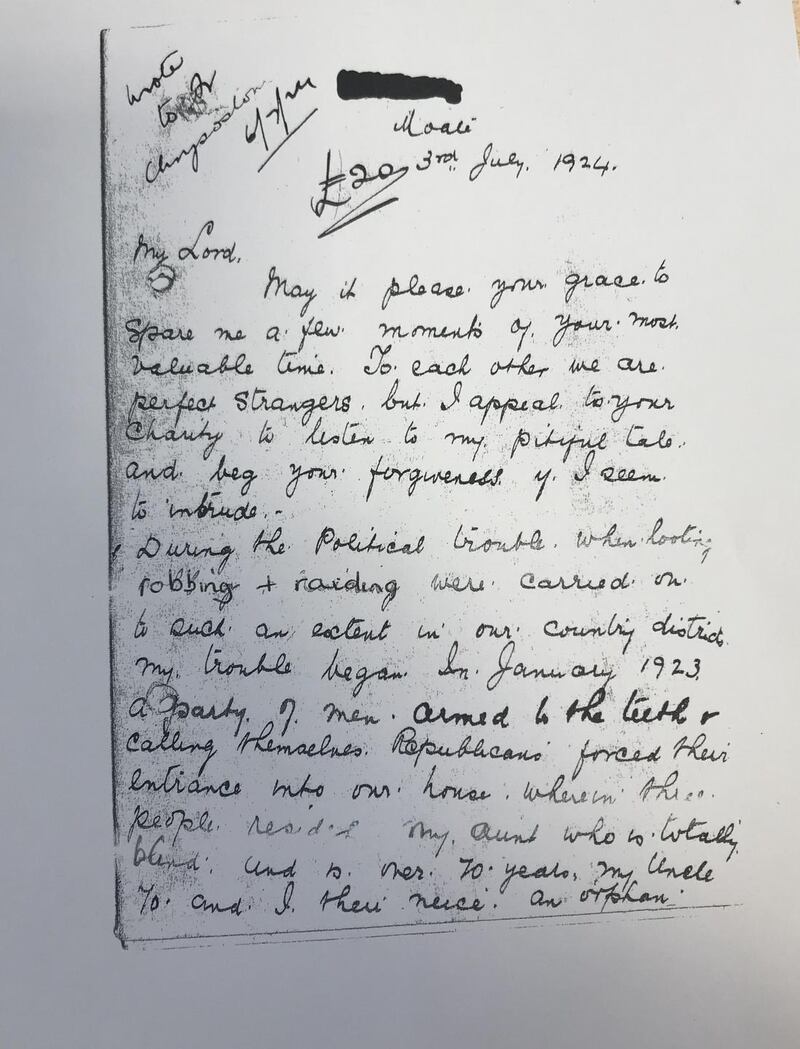 wrote
to Fr
Chrysostom
6/7/24
Moate
£20
3rd July, 1924.
My Lord,
May it please your grace to
spare me a few moments of your most
valuable time. To each other we are
perfect strangers, but I appeal to your
Charity to listen to my pitiful tale
and beg your forgiveness if I seem
to intrude.-
During the Political trouble when looting
robbing + raiding were carried on
to such an extent in our country district
my trouble began. In January 1923
a party of men armed to the teeth &
calling themselves Republicans forced their
entrance into our house wherein three
people resided my aunt who is totally
blind, and is over 70 years, my Uncle
70 and I their neice an orphan